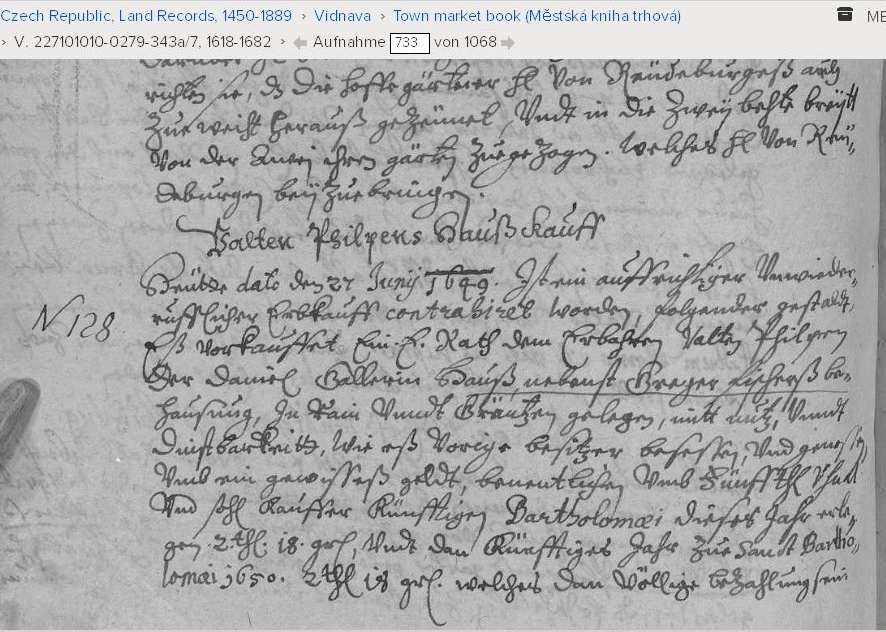 Czech Republic, Land Records, 1450-1889 › Vidnava › Town market book (Městská kniha trhová)
› V. 227101010-0279-343a/7, 1618-1682 › Aufnahme 733 von 1068
richten sie, die hoffegärtner von
heraus, Undt in die Zwey breytt
Von der ihren gärten Zuegezogen. Welches Von Rey„
deburgen bey Zuebringen.
Valten Philpens Hauß Kauff
Heütte dato den 27 Junÿ 1649. Ist ein auffrichtiger Unwieder„
rufflicher Erbkauff contrahiret worden, folgender gestaldt,
N 128
Eß Vorkauffet Ein. E. Rath dem Erbahren Valten Philpen
Der Daniel Gallerin Hauß, nebenst Greger fischerß be„
hausung, In Rain Unndt Gräntzen gelegen, mitt nutz, Unndt
Dinstbarkeitt, Wie eß Vorige besitzer besessen, Und genossen
Umb ein gewisses geldt, benentlichen Umb Fünff thl
Und sohl Kauffer Künfftigen Bartholomæi dieses Jahr erle„
gen 2. thl. 18. grl, Undt dan Künfftiges Jahr Zue Sanct Bartho„
lomæi 1650. 2 thl 18 grl. welches dan Völlige bezahlung sein